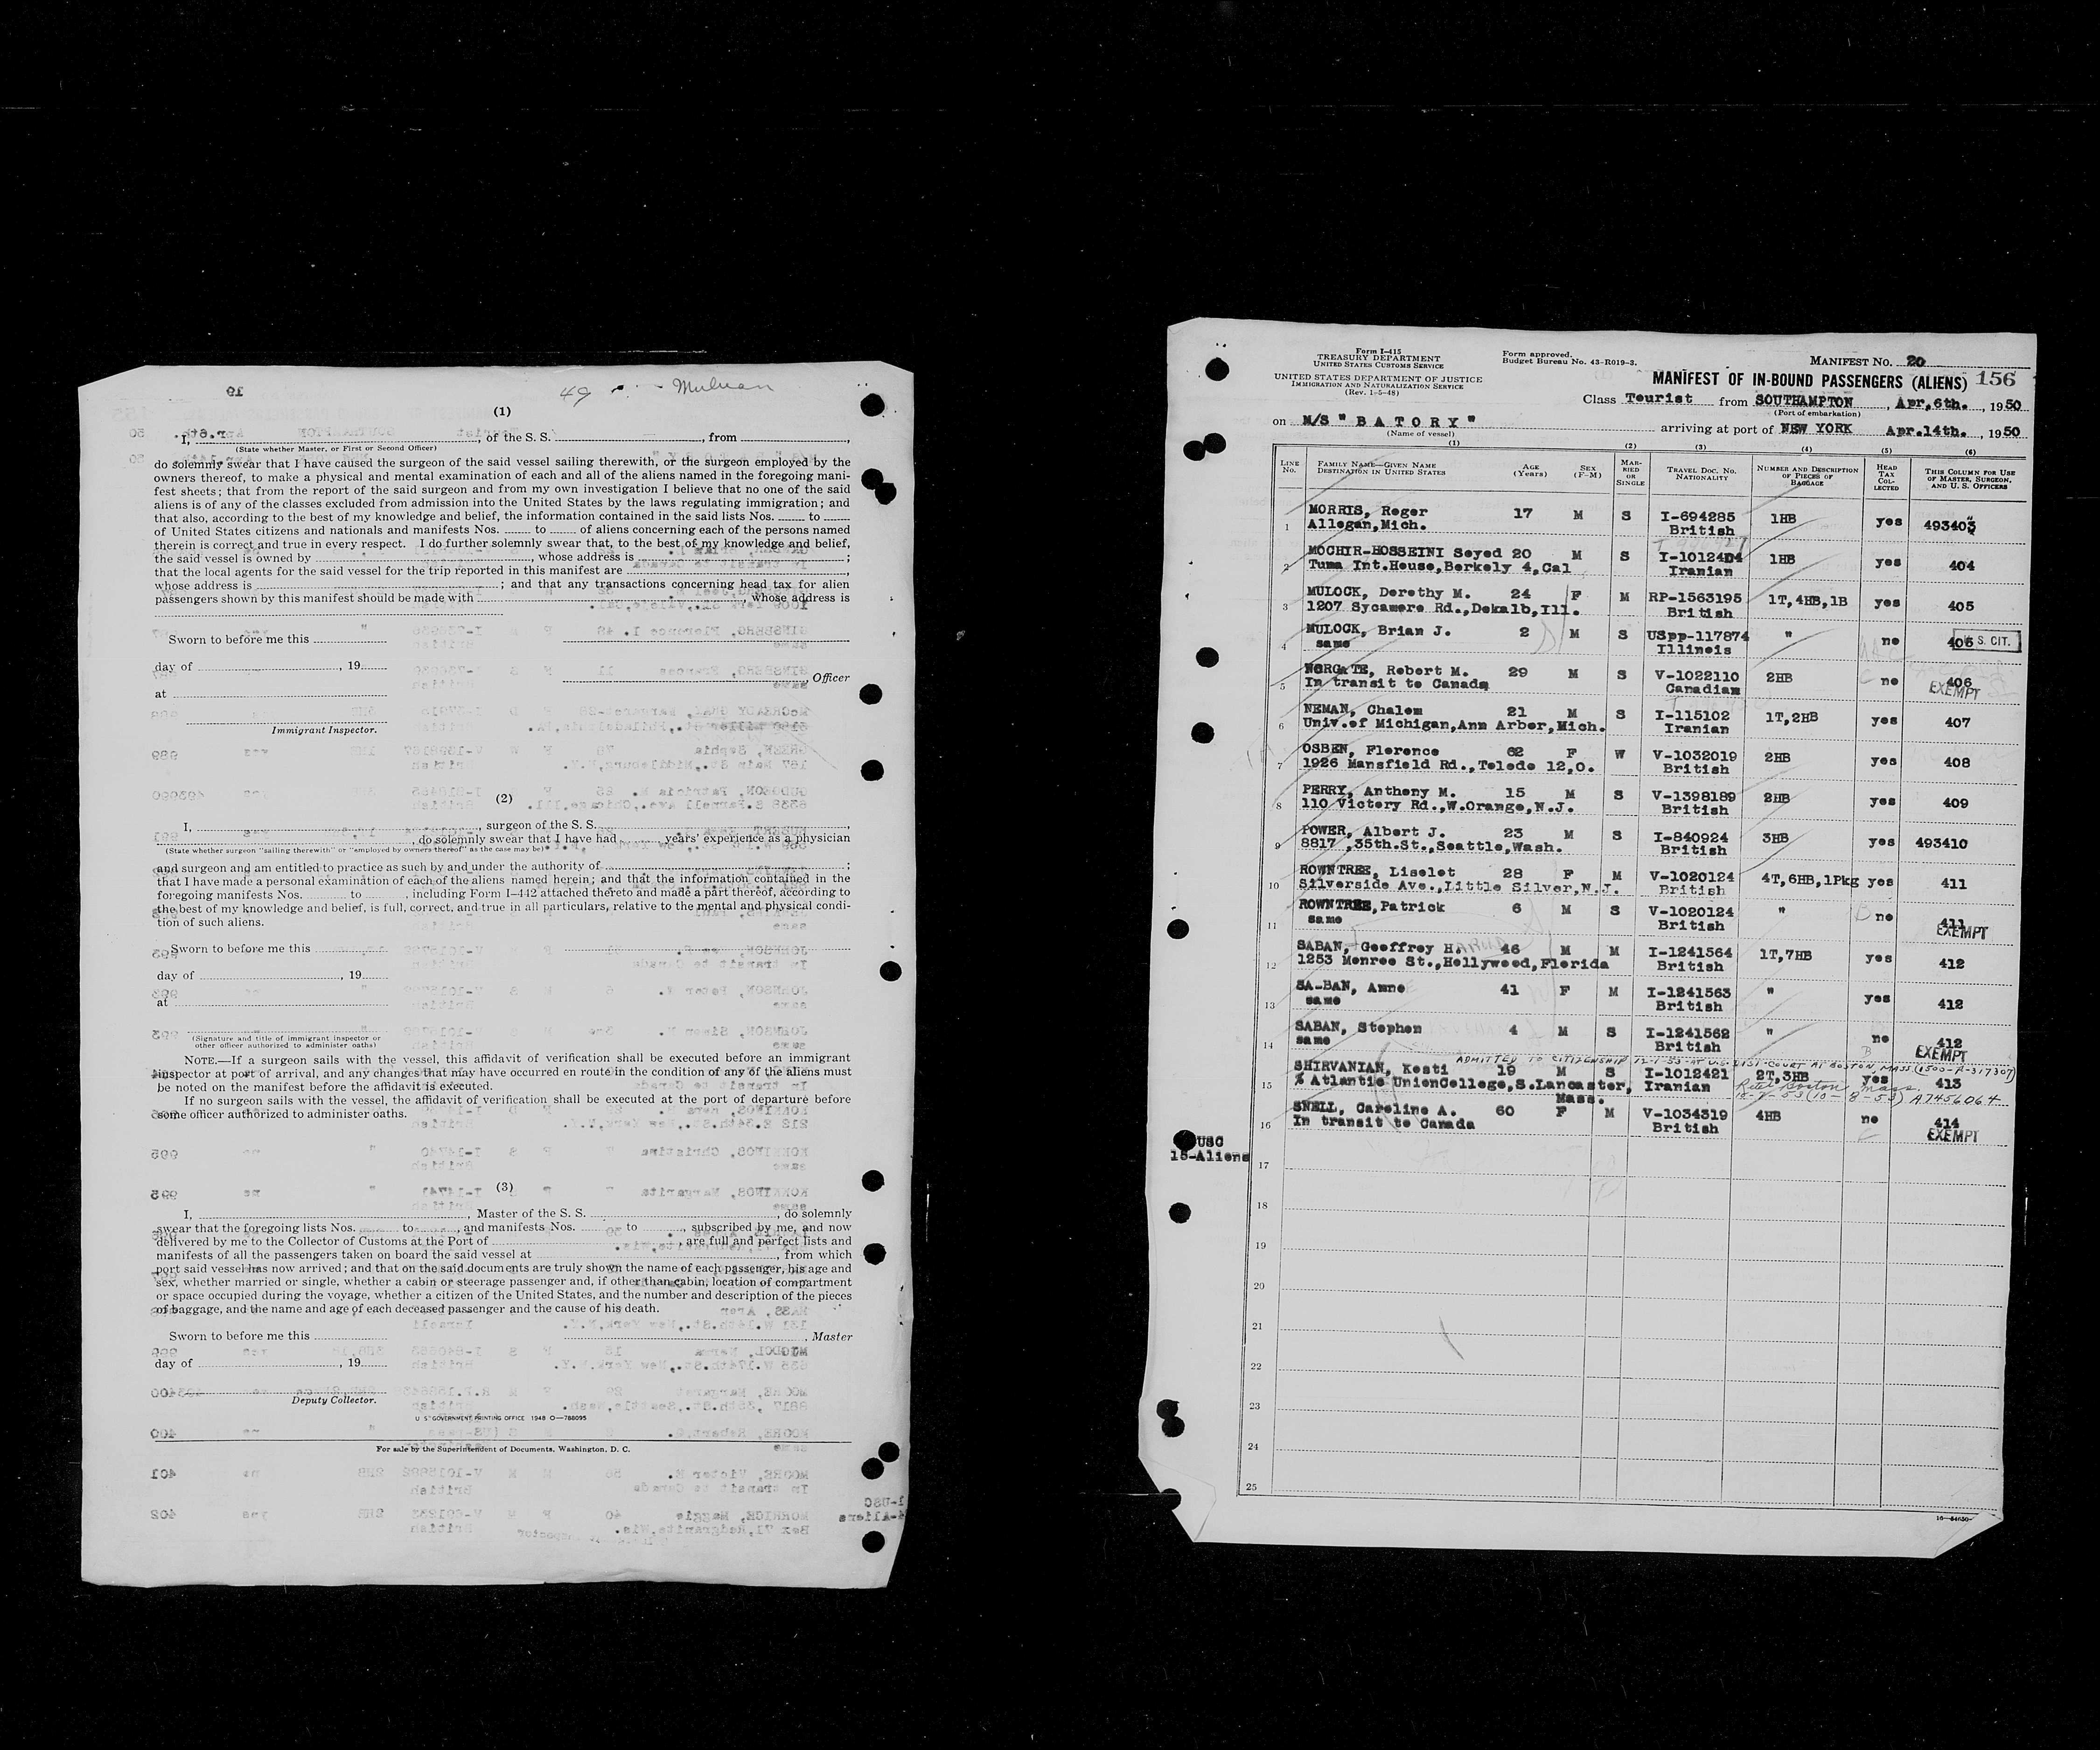 19
49
(1)
I, , of the S. S. , from ,
(State whether Master, or First or Second Officer)
do solemnly swear that I have caused the surgeon of the said vessel sailing therewith, or the surgeon employed by the
owners thereof, to make a physical and mental examination of each and all of the aliens named in the foregoing mani-
fest sheets; that from the report of the said surgeon and from my own investigation I believe that no one of the said
aliens is of any of the classes excluded from admission into the United States by the laws regulating immigration; and
that also, according to the best of my knowledge and belief, the information contained in the said lists Nos. to
of United States citizens and nationals and manifests Nos. to of aliens concerning each of the persons named
therein is correct and true in every respect. I do further solemnly swear that, to the best of my knowledge and belief,
the said vessel is owned by , whose address is ;
that the local agents for the said vessel for the trip reported in this manifest are ,
whose address is ; and that any transactions concerning head tax for alien
passengers shown by this manifest should be made with whose address is
Sworn to before me this
day of , 19
, Officer
at
Immigrant Inspector.
(2)
I, , surgeon of the S. S. ,
, do solemnly swear that I have had years' experience as a physician
(State whether surgeon "sailing therewith" or "employed by owners thereof" as the case may be)
and surgeon and am entitled to practice as such by and under the authority of ;
that I have made a personal examination of each of the aliens named herein; and that the information contained in the
foregoing manifests Nos. to , including Form I-442 attached thereto and made a part thereof, according to
the best of my knowledge and belief, is full, correct, and true in all particulars, relative to the mental and physical condi-
tion of such aliens.
Sworn to before me this
day of , 19
at
(Signature and title of immigrant inspector or
other officer authorized to administer oaths)
NOTE.—If a surgeon sails with the vessel, this affidavit of verification shall be executed before an immigrant
inspector at port of arrival, and any changes that may have occurred en route in the condition of any of the aliens must
be noted on the manifest before the affidavit is executed.
If no surgeon sails with the vessel, the affidavit of verification shall be executed at the port of departure before
some officer authorized to administer oaths.
(3)
I, , Master of the S. S. , do solemnly
swear that the foregoing lists Nos. to , and manifests Nos. to , subscribed by me, and now
delivered by me to the Collector of Customs at the Port of , are full and perfect lists and
manifests of all the passengers taken on board the said vessel at , from which
port said vessel has now arrived; and that on the said documents are truly shown the name of each passenger, his age and
sex, whether married or single, whether a cabin or steerage passenger and, if other than cabin, location of compartment
or space occupied during the voyage, whether a citizen of the United States, and the number and description of the pieces
of baggage, and the name and age of each deceased passenger and the cause of his death.
Sworn to before me this
, Master
day of , 19
Deputy Collector.
U S GOVERNMENT PRINTING OFFICE 1948 O—788095
For sale by the Superintendent of Documents, Washington, D. C.
Form I-415
TREASURY DEPARTMENT
UNITED STATES CUSTOMS SERVICE
UNITED STATES DEPARTMENT OF JUSTICE
IMMIGRATION AND NATURALIZATION SERVICE
(Rev. 1-5-48)
Form approved.
Budget Bureau No. 43-R019-3.
MANIFEST No. 20
MANIFEST OF IN-BOUND PASSENGERS (ALIENS) 156
Class Tourist from SOUTHAMPTON , Apr.6th. , 1950
(Port of embarkation)
on M/S " B A T O R Y " arriving at port of NEW YORK Apr.14th. , 1950
(Name of vessel)
(1) (2) (3) (4) (5) (6)
LINE No. FAMILY NAME—GIVEN NAME DESTINATION IN UNITED STATES AGE (Years) SEX (F-M) MARRIED OR SINGLE TRAVEL DOC. NO. NATIONALITY NUMBER AND DESCRIPTION OF PIECES OF BAGGAGE HEAD TAX COLLECTED THIS COLUMN FOR USE OF MASTER, SURGEON, AND U. S. OFFICERS
MORRIS, Roger 17 M S I-694285 1HB yes 493403
1 Allegan,Mich. British
MOCHIR-HOSSEINI Seyed 20 M S I-1012404 1HB yes 404
2 Tuma Int.House,Berkely 4,Cal Iranian
MULOCK, Dorothy M. 24 F M RP-1563195 1T,4HB,1B yes 405
3 1207 Sycamore Rd.,Dekalb,Ill. British
MULOCK, Brian J. 2 M S USpp-117874 " no 405 U. S. CIT.
4 same Illinois
NORGATE, Robert M. 29 M S V-1022110 2HB no 406
5 In transit to Canada Canadian EXEMPT
NEMAN, Chalom 21 M S I-115102 1T,2HB yes 407
6 Univ.of Michigan,Ann Arbor,Mich. Iranian
OSBEN, Florence 62 F W V-1032019 2HB yes 408
7 1926 Mansfield Rd.,Toledo 12,O. British
PERRY, Anthony M. 15 M S V-1398189 2HB yes 409
8 110 Victory Rd.,W.Orange,N.J. British
POWER, Albert J. 23 M S I-840924 3HB yes 493410
9 8817 ,35th.St.,Seattle,Wash. British
ROWNTREE, Liselot 28 F M V-1020124 4T,6HB,1Pkg yes 411
10 Silverside Ave.,Little Silver,N.J. British
ROWNTREE,Patrick 6 M S V-1020124 " no 411
11 same British EXEMPT
SABAN, Geoffrey H. 46 M M I-1241564 1T,7HB yes 412
12 1253 Monroe St.,Hollywood,Florida British
SA-BAN, Anne 41 F M I-1241563 " yes 412
13 same British
SABAN, Stephen 4 M S I-1241562 " no 412
14 same British EXEMPT
ADMITTED TO CITIZENSHIP 12-7-53 AT U.S. DIST COURT AT BOSTON, MASS (1500-A-317307)
SHIRVANIAN, Kosti 19 M S I-1012421 2T,3HB yes 413
15 % Atlantic UnionCollege,S.Lancaster, Iranian Boston Mass.
Mass. (10-8-53) A7456064
SNELL, Caroline A. 60 F M V-1034319 4HB no 414
16 In transit to Canada British EXEMPT
USC
15-Aliens
17
18
19
20
21
22
23
24
25